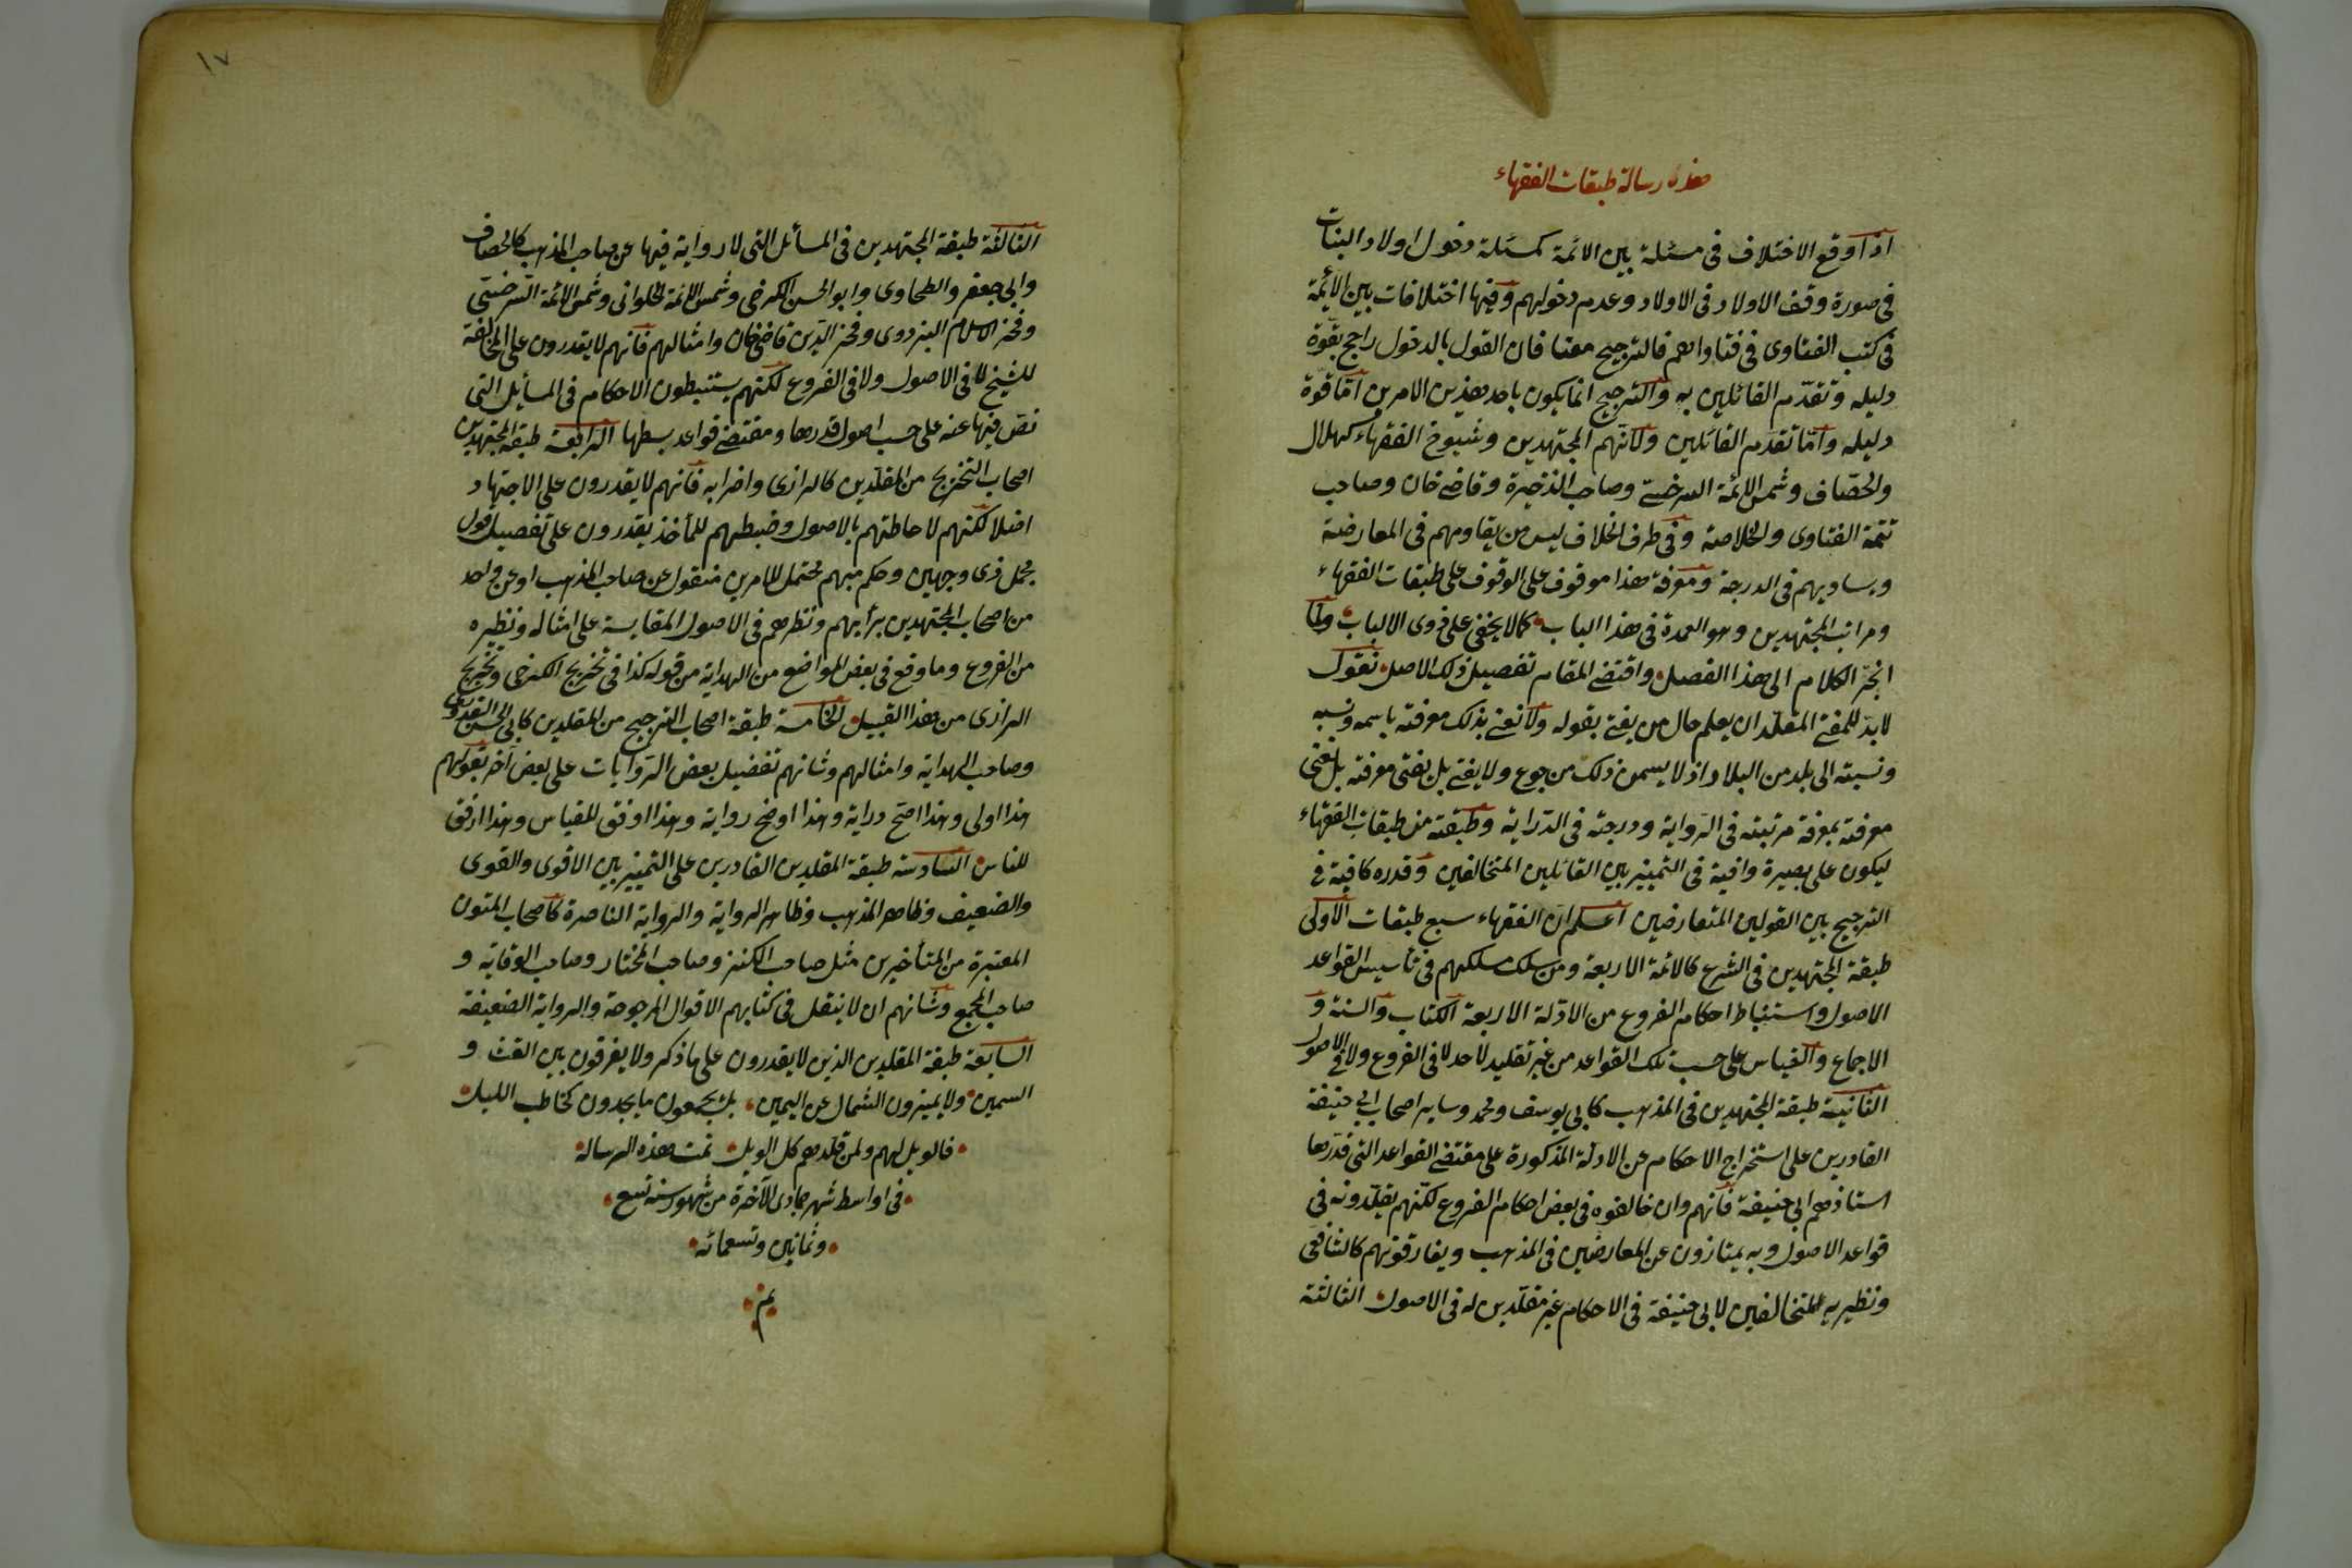 هذه رسالة طبقات الفقهاء
اذا وقع الاختلاف في مسئلة بين الائمة كمسئلة دخول اولاد البنات
في صورة وقف الاولاد في الاولاد وعدم دخولهم وفيها اختلافات بين الائمة
في كتب الفتاوى في فتاواهم فالترجيح معنا فان القول بالدخول راجح بقوة
دليله وتقدم القائلين به والترجيح انما يكون باحد هذين الامرين اما قوة
دليله واما تقدم القائلين ولانهم المجتهدين وشيوخ الفقهاء كهلال
والخصاف وشمس الائمة السرخسي وصاحب الذخيرة وقاضي خان وصاحب
تتمة الفتاوى والخلاصة وفي طرف الخلاف ليس من يقاومهم في المعارضة
ويساويهم في الدرجة ومعرفة هذا موقوف على الوقوف على طبقات الفقهاء
ومراتب المجتهدين وهو العمدة في هذا الباب كما لا يخفى على ذوى الالباب ولما
انجر الكلام الى هذا الفصل واقتضى المقام تفصيل ذلك الاصل نقول
لا بد للمفتي المقلد ان يعلم حال من يفتي بقوله ولا نعني بذلك معرفته باسمه ونسبه
ونسبته الى بلد من البلاد اذ لا يسمن ذلك من جوع ولا يغني بل نعني معرفته
معرفته بمعرفة مرتبته في الرواية ودرجته في الدراية وطبقته من طبقات الفقهاء
ليكون على بصيرة وافية في التمييز بين القائلين المتخالفين وقدره كافية في
الترجيح بين القولين المتعارضين اعلم ان الفقهاء سبع طبقات الاولى
طبقة المجتهدين في الشرع كالائمة الاربعة ومن سلك مسلكهم في تأسيس القواعد
الاصول واستنباط احكام الفروع من الادلة الاربعة الكتاب والسنة و
الاجماع والقياس على حسب تلك القواعد من غير تقليد لاحد لا في الفروع ولا في الاصول
الثانية طبقة المجتهدين في المذهب كابي يوسف ومحمد وساير اصحاب ابي حنيفة
القادرين على استخراج الاحكام عن الادلة المذكورة على مقتضى القواعد التي قدرها
استاذهم ابي حنيفة فانهم وان خالفوه في بعض احكام الفروع لكنهم يقلدونه في
قواعد الاصول وبه يمتازون عن المعارضين في المذهب ويفارقونهم كالشافعى
ونظيريه المتخالفين لابي حنيفة في الاحكام غير مقلدين له في الاصول الثالثة
١٧
الثالثة طبقة المجتهدين في المسائل التي لا رواية فيها عن صاحب المذهب كالخصاف
وابي جعفر والطحاوى وابو الحسن الكرخي وشمس الائمة الحلواني وشمس الائمة السرخسي
وفخر الاسلام البزدوى وفخر الدين قاضي خان وامثالهم فانهم لا يقدرون على المخالفة
للشيخ لا في الاصول ولا في الفروع لكنهم يستنبطون الاحكام في المسايل التي
نص فيها عنه على حسب اصول قدرها ومقتضى قواعد بسطها الرابعة طبقة المجتهدين
اصحاب التخريج من المقلدين كالرازى واضرابه فانهم لا يقدرون على الاجتهاد
اصلا لكنهم لاحاطتهم بالاصول وضبطهم للمأخذ يقدرون على تفصيل قول
مجمل ذى وجهين وحكم مبهم محتمل للامرين منقول عن صاحب المذهب او عن واحد
من اصحاب المجتهدين برأيهم ونظرهم في الاصول المقايسة على امثاله ونظيره
من الفروع وما وقع في بعض المواضع من الهداية من قوله كذا في تخريج الكرخي وتخريج
الرازى من هذا القبيل الخامسة طبقة اصحاب الترجيح من المقلدين كابي الحسن القدورى
وصاحب الهداية وامثالهم وشانهم تفضيل بعض الروايات على بعض آخر بقولهم
هذا اولى وهذا اصح دراية وهذا اوضح رواية وهذا اوفق للقياس وهذا ارفق
للناس السادسة طبقة المقلدين القادرين على التمييز بين الاقوى والقوى
والضعيف وظاهر المذهب وظاهر الرواية والرواية الناصرة كاصحاب المتون
المعتبرة من المتأخيرين مثل صاحب الكنز وصاحب المختار وصاحب الوقاية و
صاحب المجمع وشانهم ان لا ينقل في كتابهم الاقوال المرجوحة والرواية الضعيفة
السابعة طبقة المقلدين الذين لا يقدرون على ما ذكر ولا يفرقون بين الغث و
السمين ولا يميزون الشمال عن اليمين بل يجمعون ما يجدون كحاطب الليل
فالويل لهم ولمن قلدهم كل الويل تمت هذه الرسالة
في اواسط شهر جمادى الآخرة من شهور سنه تسع
وثمانين وتسعمائه
تم